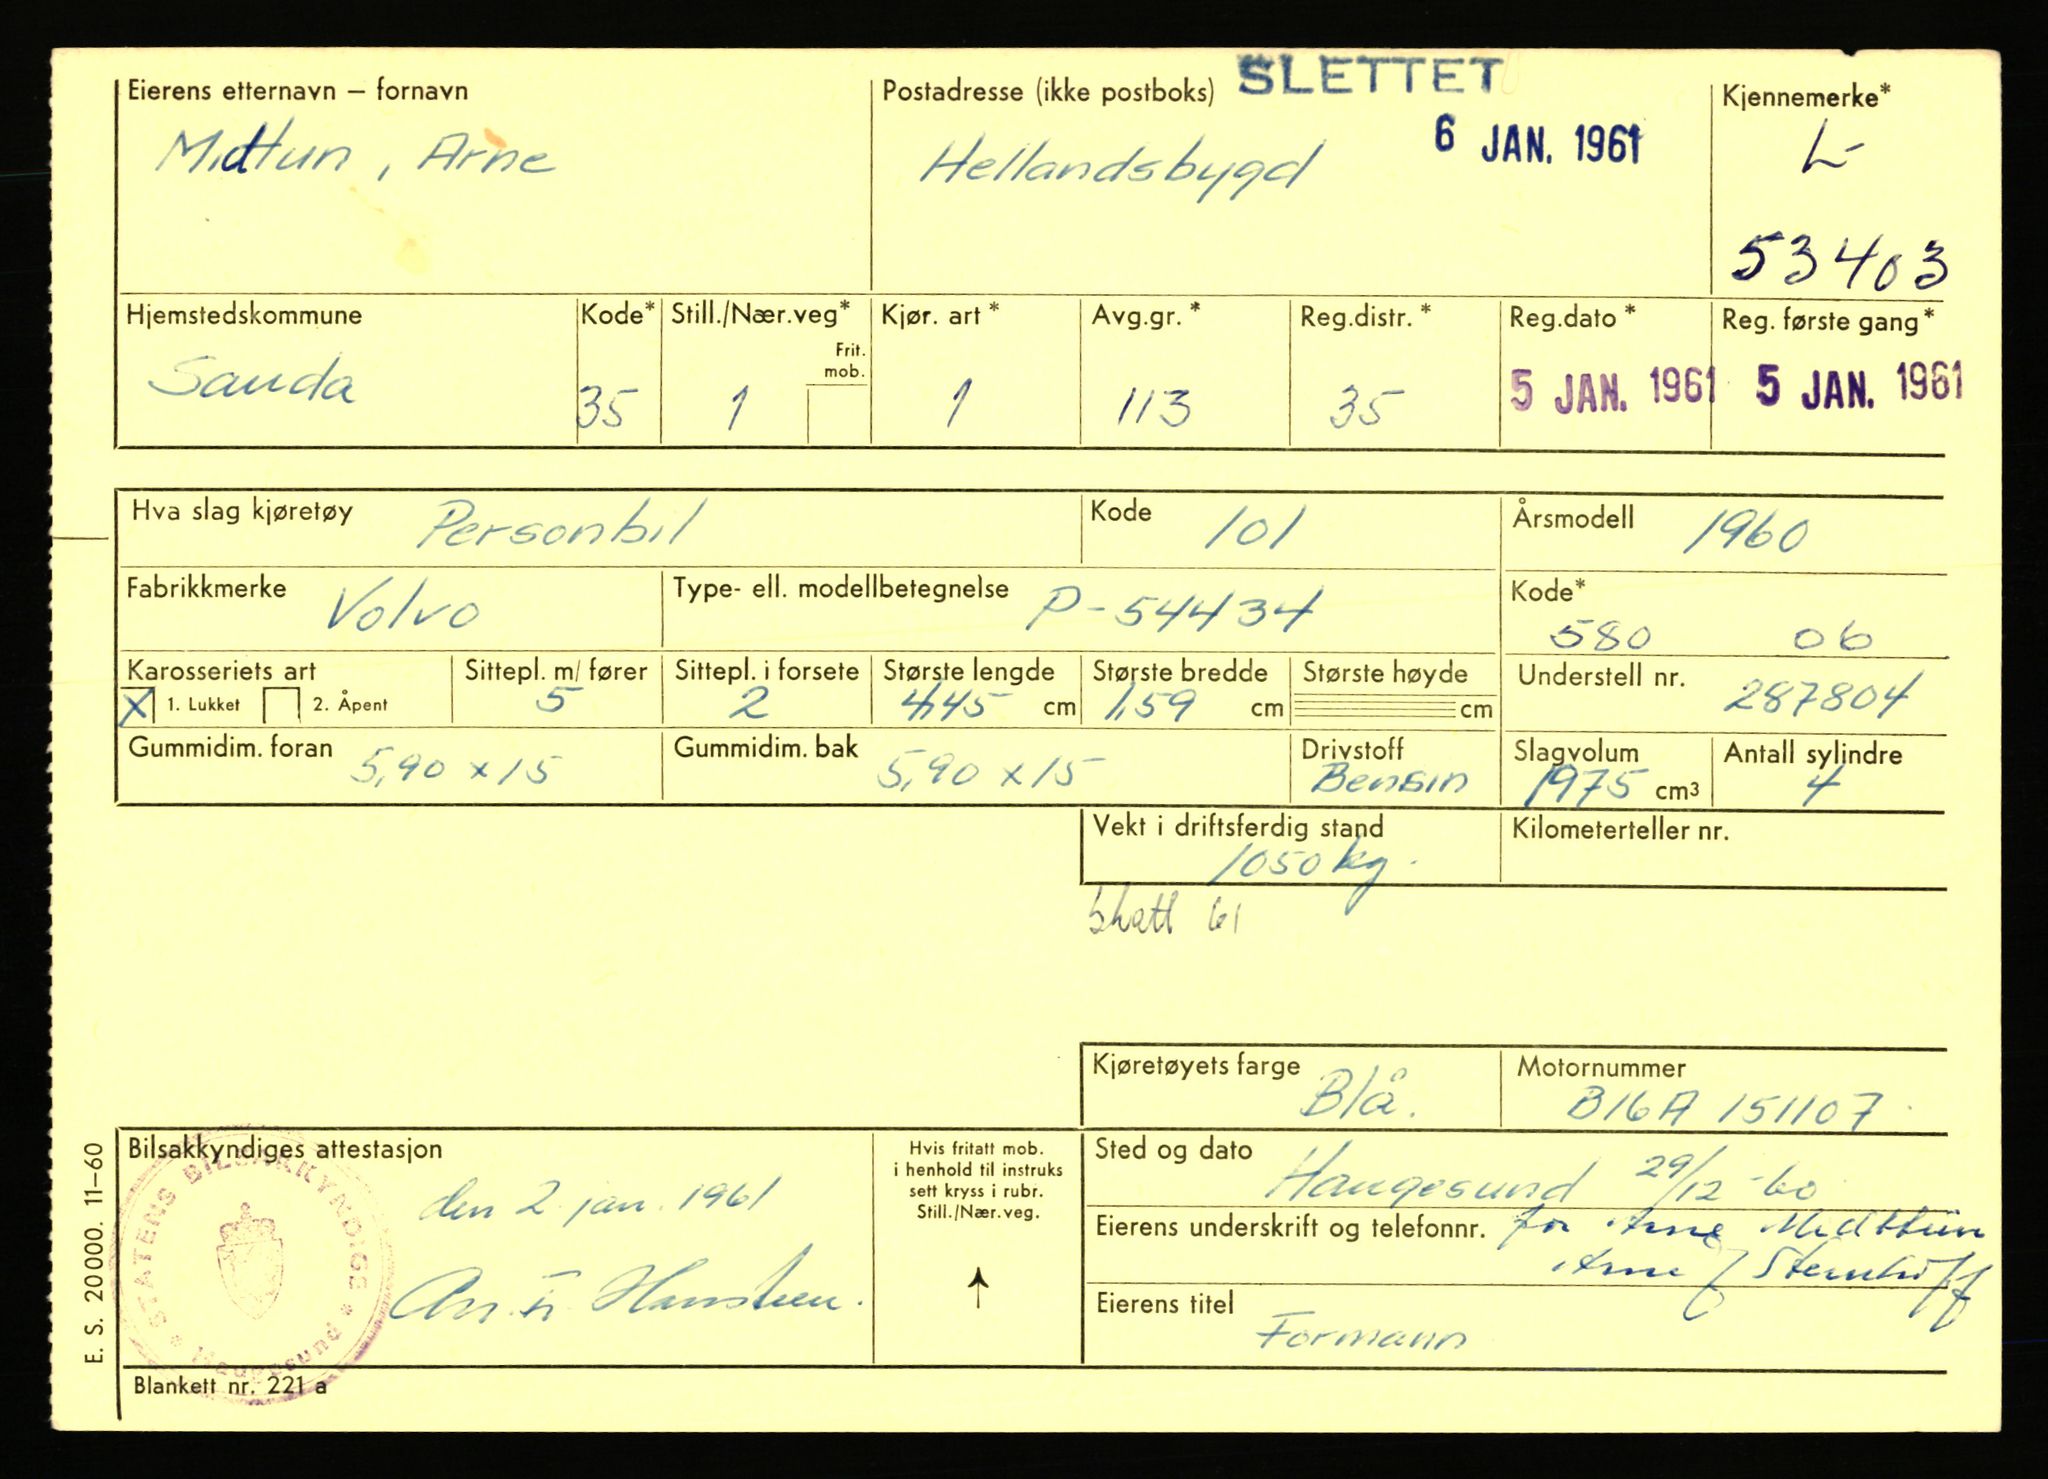 Eierens etternavn – fornavn
Midtun, Arne
Postadresse (ikke postboks)
Hellandsbygd
SLETTET
6 JAN. 1961
Kjennemerke*
L-
53403
Hjemstedskommune
Sauda
Kode*
35
Still./Nær.veg*
1
Frit.
mob.
Kjør. art *
1
Avg.gr. *
113
Reg.distr. *
35
Reg.dato *
5 JAN. 1961
Reg. første gang*
5 JAN. 1961
Hva slag kjøretøy Personbil
Kode 101
Årsmodell 1960
Fabrikkmerke Volvo
Type- ell. modellbetegnelse P-54434
Kode*
580 06
Karosseriets art
X 1. Lukket 2. Åpent
Sittepl. m/ fører
5
Sittepl. i forsete
2
Største lengde
4,45 cm
Største bredde
1,59 cm
Største høyde
cm
Understell nr.
287804
Gummidim. foran
5,90 x 15
Gummidim. bak
5,90 x 15
Drivstoff
Bensin
Slagvolum
1975 cm³
Antall sylindre
4
Vekt i driftsferdig stand
1050 kg.
Kilometerteller nr.
skatt 61
Kjøretøyets farge
Blå.
Motornummer
B16A 151107
Bilsakkyndiges attestasjon
den 2. jan. 1961
Hansteen.
STATENS BILSAKKYNDIGE * Haugesund *
Hvis fritatt mob.
i henhold til instruks
sett kryss i rubr.
Still./Nær.veg.
Sted og dato
Haugesund 29/12-60
Eierens underskrift og telefonnr. for Arne Midttun
Arne
Eierens titel
Formann
E. S. 20000. 11–60
Blankett nr. 221 a